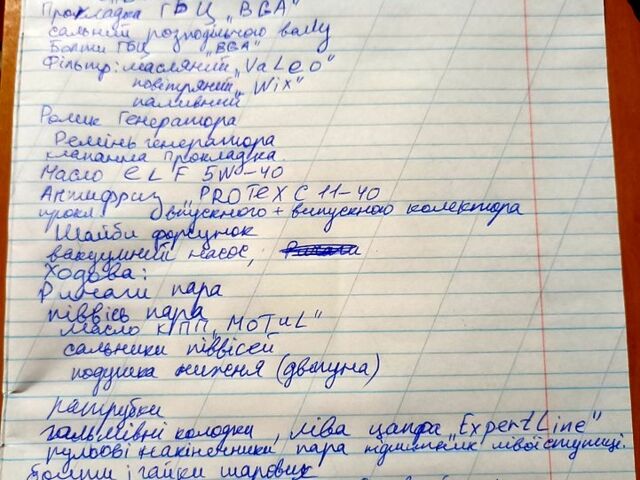 Прокладка ГБЦ "BGA"
сальний розподільчого валу
Болти ГБЦ "BGA"
Фільтр: масляний "VaLeo"
повітряний "Wix"
паливний
Ролик Генератора
Ремінь генератора
клапанна прокладка.
Масло eLF 5W-40
Антифриз "PROTEX C 11-40
прокл впускного + випускного колектора
Шайби форсунок
вакуумний насос,
Ходова:
Ричаги пара
піввісь пара
Масло КПП "MOTUL"
сальники піввісей
подушка нижня (двигуна)
патрубки
гальмівні колодки, ліва цапфа "ExpertLine"
рульові накінечники пара підшипник лівої ступиці.
болти і гайки шарових